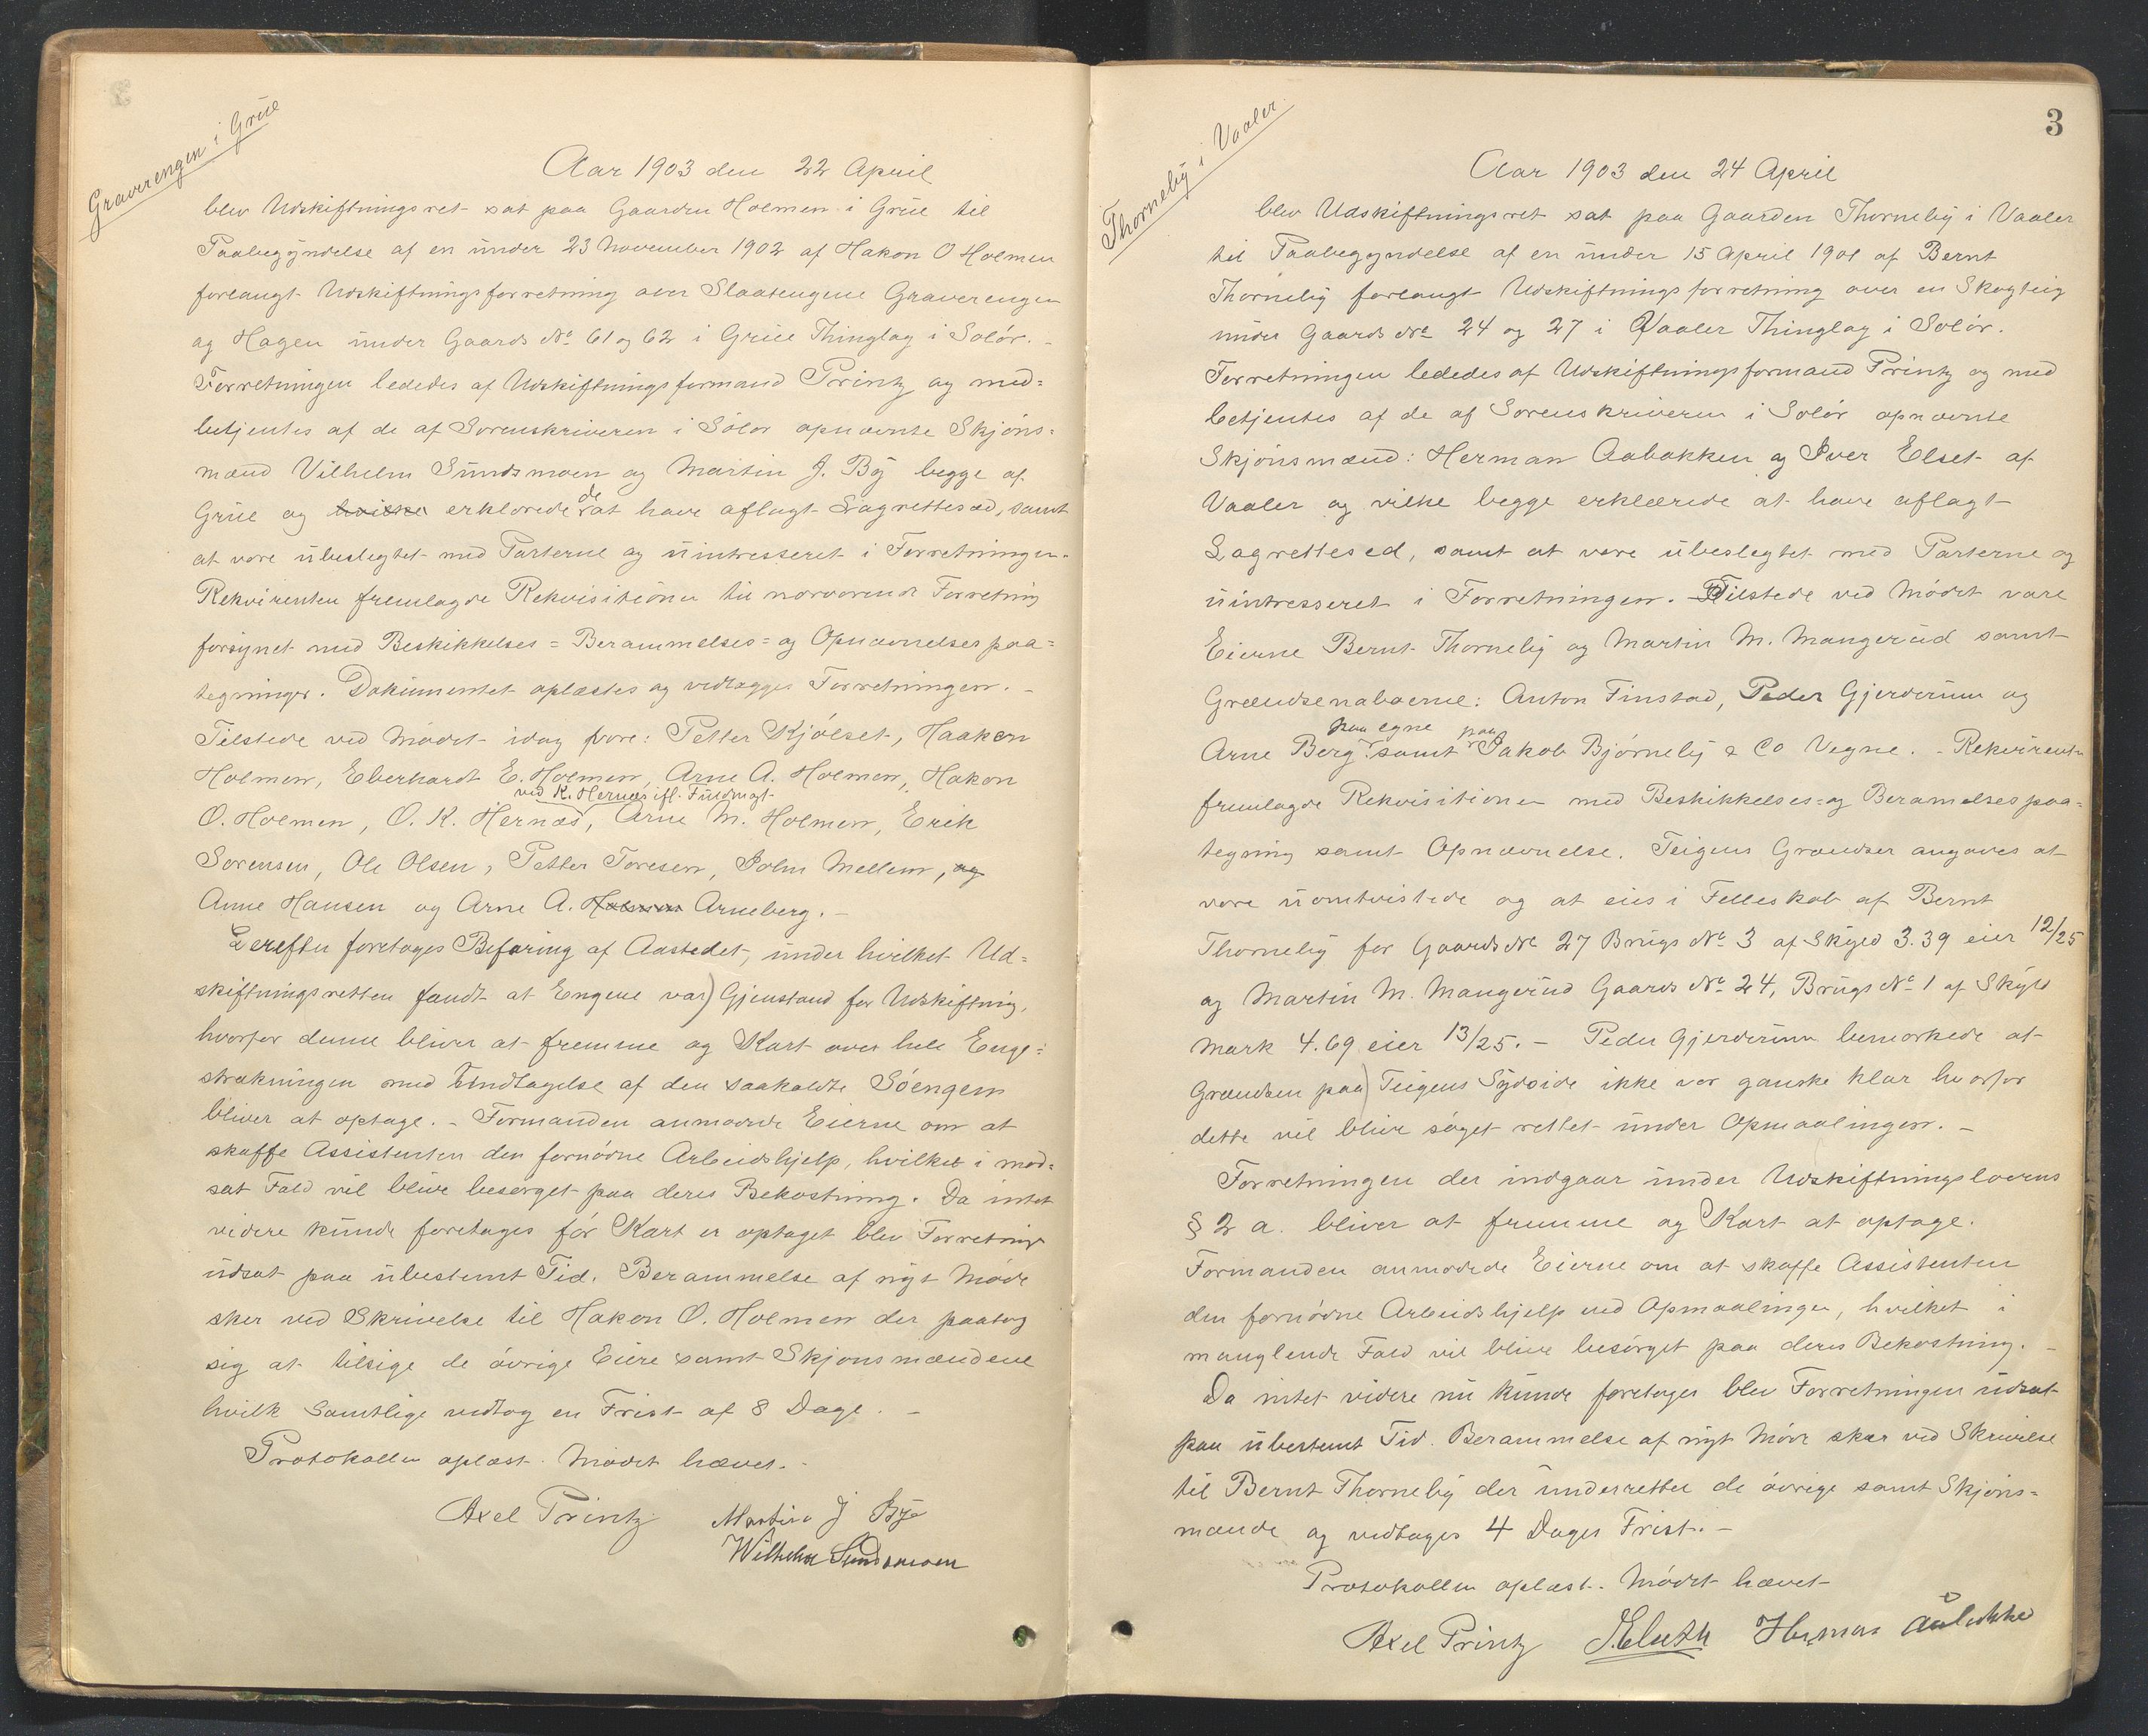 Graverengen i Grue
Aar 1903 den 22 April
blev Udskiftningsret sat paa Gaarden Holmen i Grue til
Paabegyndelse af en under 23 November 1902 af Hakon O Holmen
forlangt Udskiftningsforretning over Slaatengene Graverengen
og Hagen under Gaards No 61 og 62 i Grue Thinglag i Solør. -
Forretningen lededes af Udskiftningsformand Printz og med=
betjentes af de af Sorenskriveren i Solør opnævnte Skjøns=
mænd Vilhelm Sundsmoen og Martin J. By begge af
de
Grue og hvilke erklærede at have aflagt Lagrettesed, samt
at være ubeslegtet med Parterne og uintresseret i Forretningen.
Rekvirenten fremlagde Rekvisitionen til nærværende Forretning
forsynet med Beskikkelses= Berammelses= og Opnævnelsespaa=
tegninger. Dokumentet oplæstes og vedlægges Forretningen. -
Tilstede ved Mødet idag være: Petter Kjølset, Haaken
Holmen, Eberhardt E. Holmen, Arne A. Holmen, Hakon
ved K. Hernæs ifl. Fuldmagt
O. Holmen, O. K. Hernæs, Arne M. Holmen, Erik
Sørensen, Ole Olsen, Petter Toresen, John Mellem, og
Anne Hansen og Arne A. Holmen Arneberg. -
Derefter foretages Befaring af Aastedet, under hvilket Ud=
skiftningsretten fandt at Engene var) Gjenstand for Udskiftning,
hvorfor denne bliver at fremme og Kart over hele Enge=
strækningen med Undtagelse af den saakaldte Søengen
bliver at optage. - Formanden anmodede Eierne om at
skaffe Assistenten den fornødne Arbeidshjelp, hvilket i mod=
sat Fald vil blive besørget paa deres Bekostning. Da intet
videre kunde foretages før Kart er optaget blev Forretning
udsat paa ubestemt Tid. Berammelse af nyt Møde
sker ved Skrivelse til Hakon O. Holmen der paatog
sig at tilsige de øvrige Eiere samt Skjønsmændene
hvilk Samtlige vedtog en Frist af 8 Dage. -
Protokollen oplæst. Mødet hævet. -
Axel Printz Martin J By
Wilhelm Sundsmoen
3
Thorneby i Vaaler
Aar 1903 den 24 April
blev Udskiftningsret sat paa Gaarden Thorneby i Vaaler
til Paabegyndelse af en under 15 April 1901 af Bernt
Thorneby forlangt Udskiftningsforretning over en Skogteig
under Gaards No 24 og 27 i Vaaler Thinglag i Solør.
Forretningen lededes af Udskiftningsformand Printz og med
betjentes af de af Sorenskriveren i Solør opnævnte
Skjønsmænd: Herman Aabakken og Iver Elset af
Vaaler og vilke begge erklærede at have aflagt
Lagrettesed, samt at være ubeslegtet med Parterne og
uintresseret i Forretningen. Tilstede ved Mødet vare
Eierne Bernt Thorneby og Martin M. Mangerud samt
Grændsenaboerne: Anton Finstad, Peder Gjerderum og
paa egne paa
Arne Berg samt Jakob Bjørneby & Co Vegne. - Rekvirenten
fremlagde Rekvisitionen med Beskikkelses= og Beramelsespaa=
tegning samt Opnævnelse. Teigens Grændser angaves at
være uomtvistede og at eies i Felleskab af Bernt
Thorneby for Gaards No 27 Brugs No 3 af Skyld 3.39 eier 12/25
og Martin M. Mangerud Gaards No 24, Brugs No 1 af Skyld
Mark 4.69 eier 13/25. - Peder Gjerderum bemærkede at
Grændsen paa) Teigens Sydside ikke var ganske klar hvorfor
dette vil blive søget rettet under Opmaalingen. -
Forretningen der indgaar under Udskiftningslovens
§ 2 a. bliver at fremme og Kart at optage.
Formanden anmodede Eierne om at skaffe Assistenten
den fornødne Arbeidshjelp ved Opmaalingen, hvilket i
manglende Fald vil blive besørget paa deres Bekostning. -
Da intet videre nu kunde foretages blev Forretningen udsat
paa ubestemt Tid. Berammelse af nyt Møde sker ved Skrivelse
til Bernt Thorneby der underretter de øvrige samt Skjøns=
mænde og vedtages 4 Dages Frist. -
Protokollen oplæst. Mødet hævet
Axel Printz Herman